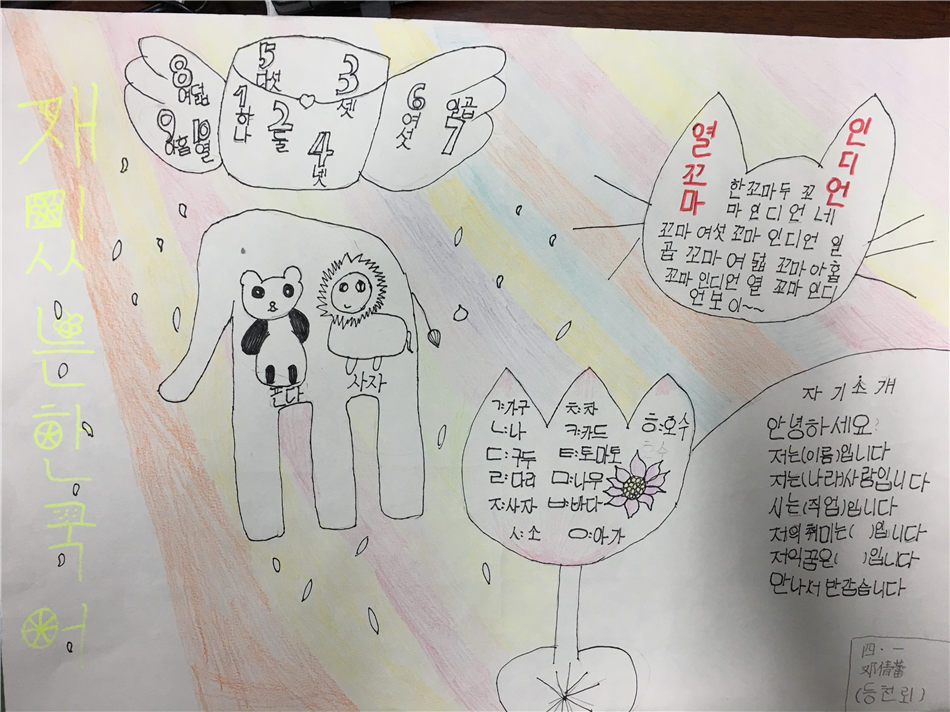 재밌는한국어
8 여덟
9 아홉
10 열
5 다섯
1 하나
2 둘
3 셋
4 넷
6 여섯
일곱 7
판다
사자
열꼬마
인디언
한꼬마 두 꼬
마 인디언 네
꼬마 여섯 꼬마 인디언 일
곱 꼬마 여덟 꼬마 아홉
꼬마 인디언 열 꼬마 인디
언 보이~~
ㄱ:가구
ㄴ:나
ㄷ:구두
ㄹ:다리
ㅈ:사자
ㅅ:소
ㅊ:차
ㅋ:카드
ㅌ:토마토
ㅁ:나무
ㅂ:바다
ㅇ:아가
ㅎ:호수
자기소개
안녕하세요?
저는(이름)입니다
저는(나라)사람입니다
시는(직업)입니다
저의 취미는( )입니다
저의꿈은( )입니다
만나서 반갑습니다
四·一
邓倩蕾
(등천뢰)